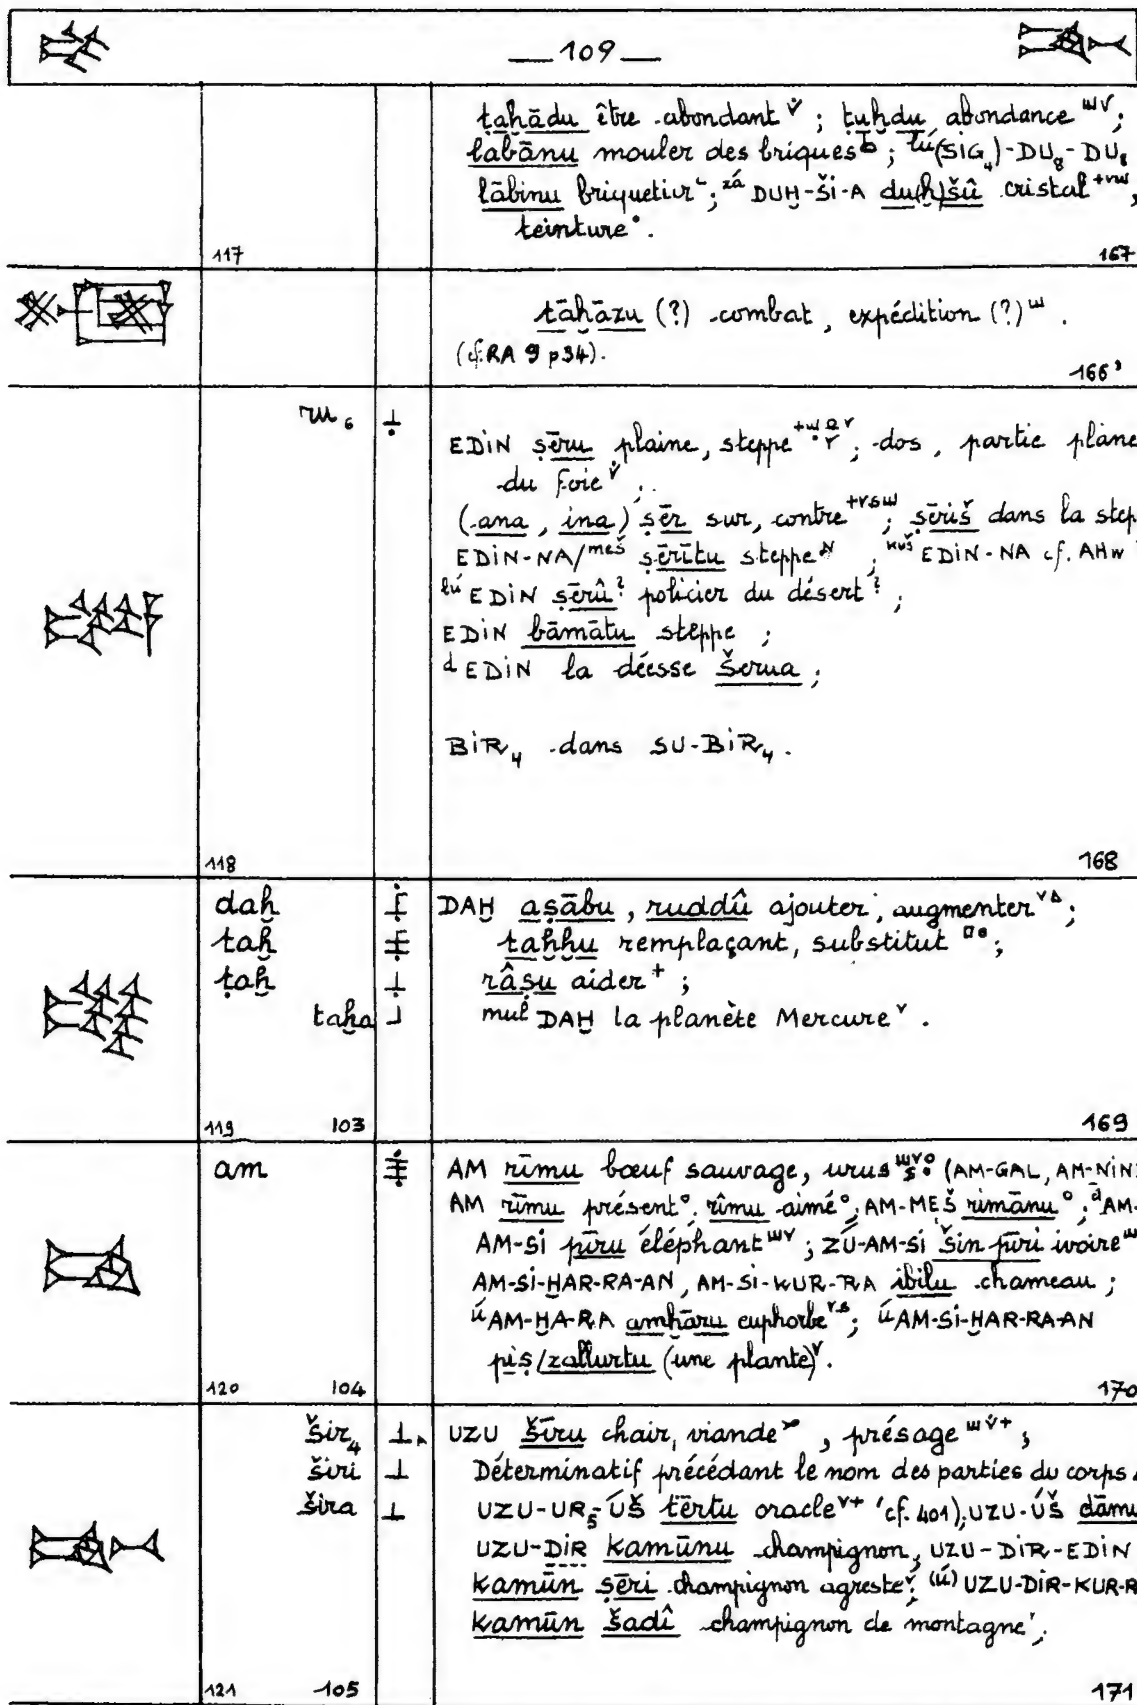 — 109 —
ṭaḫādu être abondant ; ṭuḫdu abondance ;
labānu mouler des briques ; lú(SIG₄)-DU₈-DU₈
lābinu briquetier ; zá DUḪ-ŠI-A du(ḫ)šû cristal ,
teinture .
117 167
tāḫāzu (?) combat, expédition (?) .
(cf. RA 9 p 34).
166'
ru₆
EDIN ṣēru plaine, steppe ; dos, partie plane
du foie ;
(ana, ina) ṣēr sur, contre ; ṣēriš dans la step
EDIN-NA/meš ṣērītu steppe , kuš EDIN-NA cf. AHw
lú EDIN ṣērû? policier du désert? ;
EDIN bāmātu steppe ;
d EDIN la déesse Šerua ;
BIR₄ dans SU-BIR₄.
118 168
daḫ DAḪ aṣābu, ruddû ajouter, augmenter ;
taḫ taḫḫu remplaçant, substitut ;
ṭaḫ râṣu aider + ;
taḫa mul DAḪ la planète Mercure .
119 103 169
am AM rīmu bœuf sauvage, urus (AM-GAL, AM-NIN
AM rīmu présent°, rîmu aimé°, AM-MEŠ rimānu° ; d AM-
AM-SI pīru éléphant ; ZÚ-AM-SI šin pīri ivoire
AM-SI-ḪAR-RA-AN, AM-SI-KUR-RA ibilu chameau ;
ú AM-ḪA-RA amḫāru euphorbe ; ú AM-SI-ḪAR-RA-AN
piṣ/zallurtu (une plante) .
120 104 170
šir₄ UZU šīru chair, viande , présage ;
širi Déterminatif précédant le nom des parties du corps
šira UZU-UR₅-ÚŠ tērtu oracle (cf. 401), UZU-ÚŠ dāmu
UZU-DIR kamūnu champignon, UZU-DIR-EDIN
kamūn ṣēri champignon agreste ; (ú) UZU-DIR-KUR-R
kamūn šadî champignon de montagne ;
121 105 171